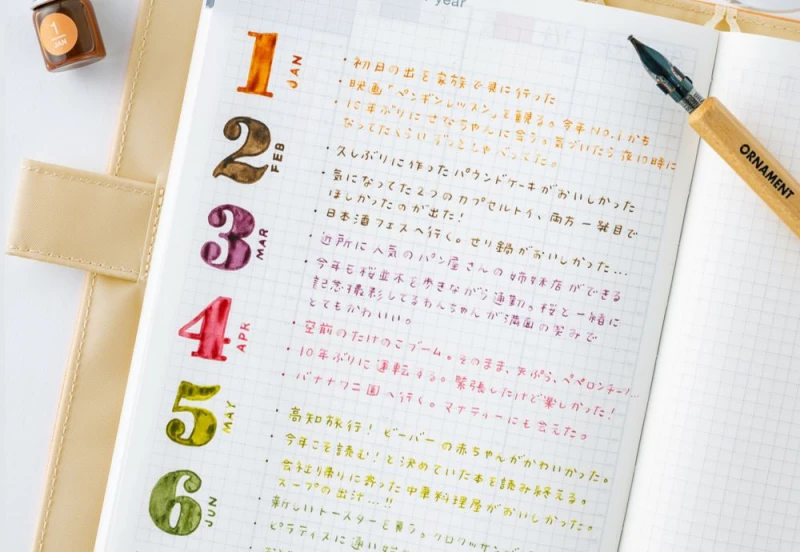 year
1
JAN
1 JAN
・初日の出を家族で見に行った
・映画「ペンギンレッスン」を観る。今年NO.1かも
・10年ぶりにせなちゃんに会う。気づいたら夜10時に
なってたくらいずっとしゃべってた。
2 FEB
・久しぶりに作ったパウンドケーキがおいしかった
・気になってた2つのカプセルトイ、両方一発目で
ほしかったのが出た!
・日本酒フェスへ行く。せり鍋がおいしかった…
3 MAR
・近所に人気のパン屋さんの姉妹店ができる
・今年も桜並木を歩きながら通勤。桜と一緒に
記念撮影してるわんちゃんが満面の笑みで
とてもかわいい。
4 APR
・空前のたけのこブーム。そのまま、天ぷら、ペペロンチーノ…
・10年ぶりに運転する。緊張したけど楽しかった!
・バナナワニ園へ行く。マナティーにも会えた。
5 MAY
・高知旅行!ビーバーの赤ちゃんがかわいかった。
・今年こそ読む!と決めていた本を読み終える。
・会社より帰りに寄った中華料理屋がおいしかった。
スープの出汁…!!
6 JUN
・新しいトースターを買う。クロワッサン
・ピラティスに通い
ORNAMENT